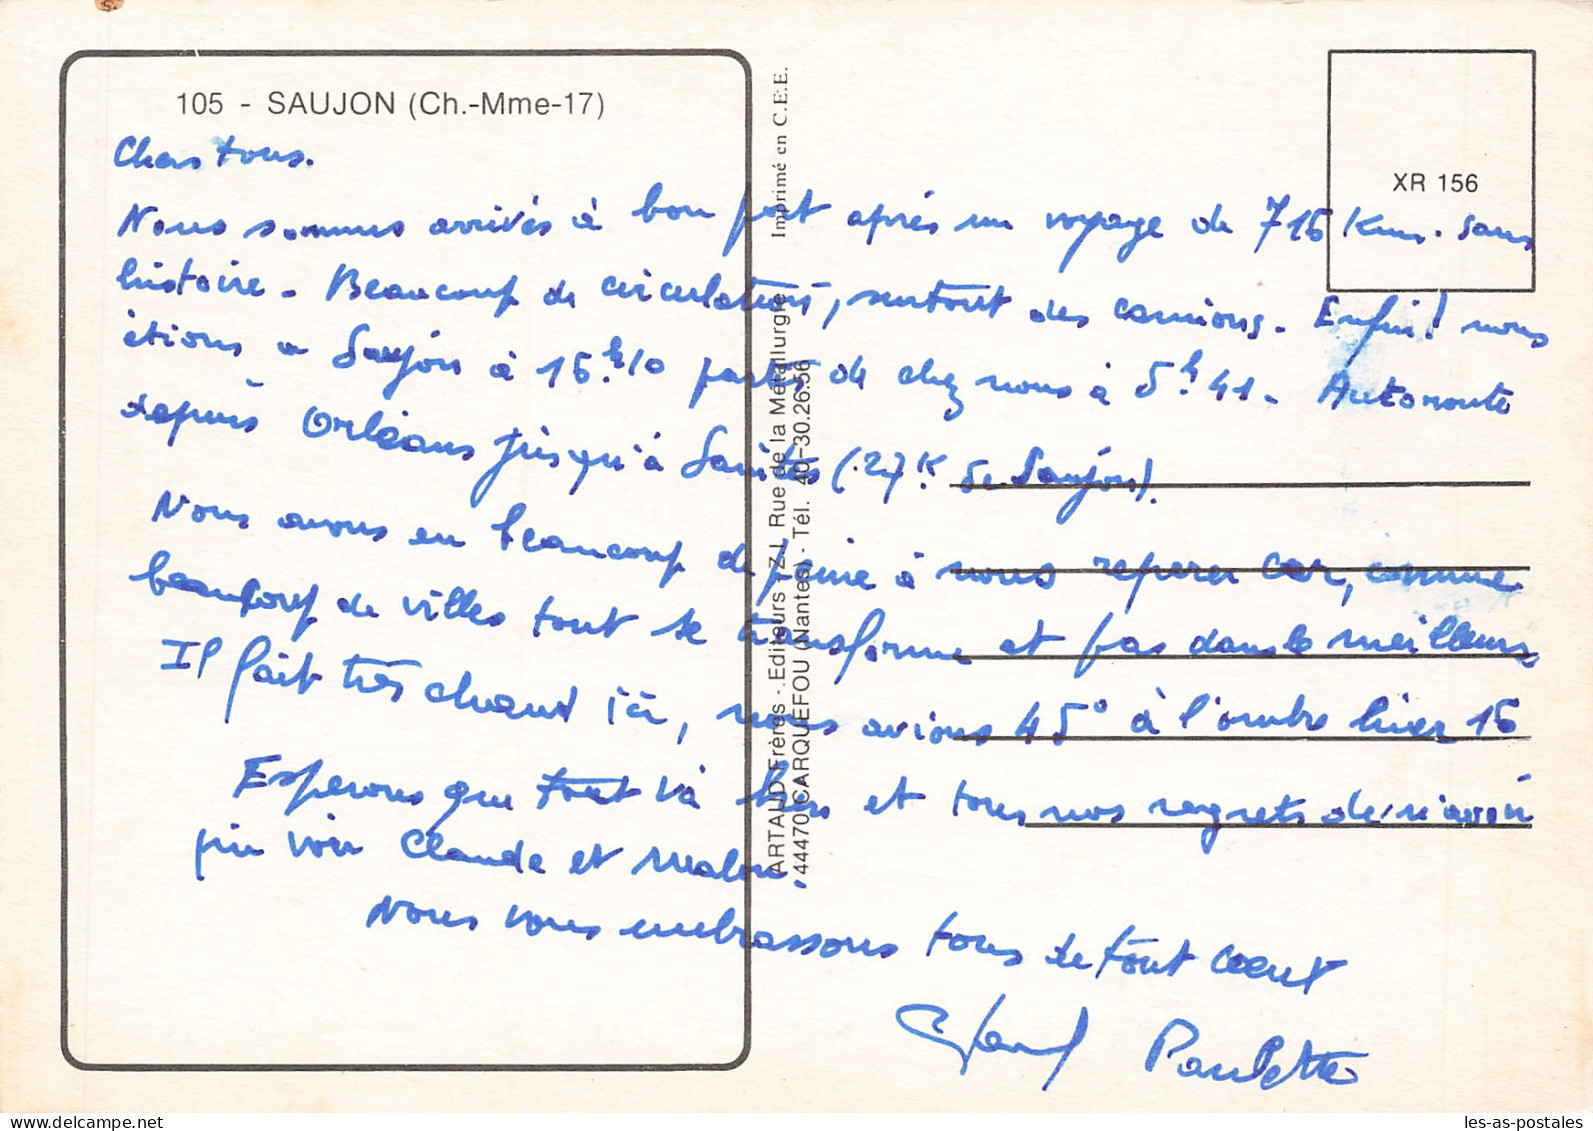 105 - SAUJON (Ch.-Mme-17)
XR 156
Imprimé en C.E.E.
ARTAUD Frères - Editeurs - Z.I. Rue de la Métallurgie
44470 CARQUEFOU (Nantes) - Tél. 40-30.26.56
Chers tous.
Nous sommes arrivés à bon port après un voyage de 716 Kms. sans
histoire. Beaucoup de circulation, surtout des camions. Enfin! nous
étions à Saujon à 16h10 partis de chez nous à 5h41. Autoroute
depuis Orléans jusqu'à Saintes (27K de Saujon).
Nous avons eu beaucoup de peine à nous reperer car, comme
beaucoup de villes tout se transforme et pas dans le meilleur.
Il fait très chaud ici, nous avions 45° à l'ombre hier 16
Esperons que tout va bien et tous nos regrets de n'avoir
pu voir Claude et
Nous vous embrassons tous de tout coeur
Paulette
les-as-postales